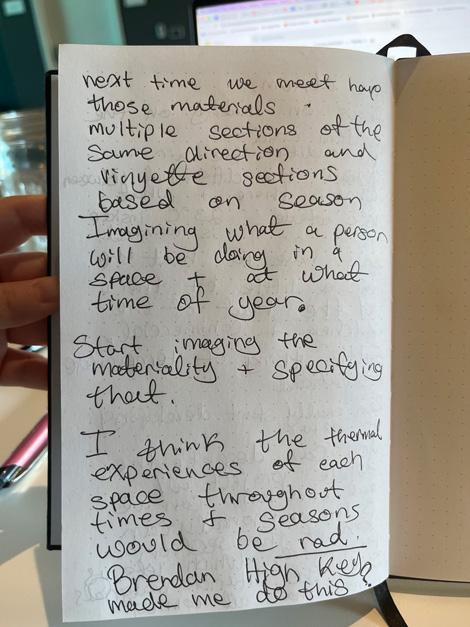 next time we meet have
those materials .
multiple sections of the
same direction and
vinyette sections
based on season
Imagining what a person
will be doing in a
space + at what
time of year.
Start imaging the
materiality + specifying
that.
I think the thermal
experiences of each
space throughout
times + seasons
would be rad.
Brendan High Key
made me do this